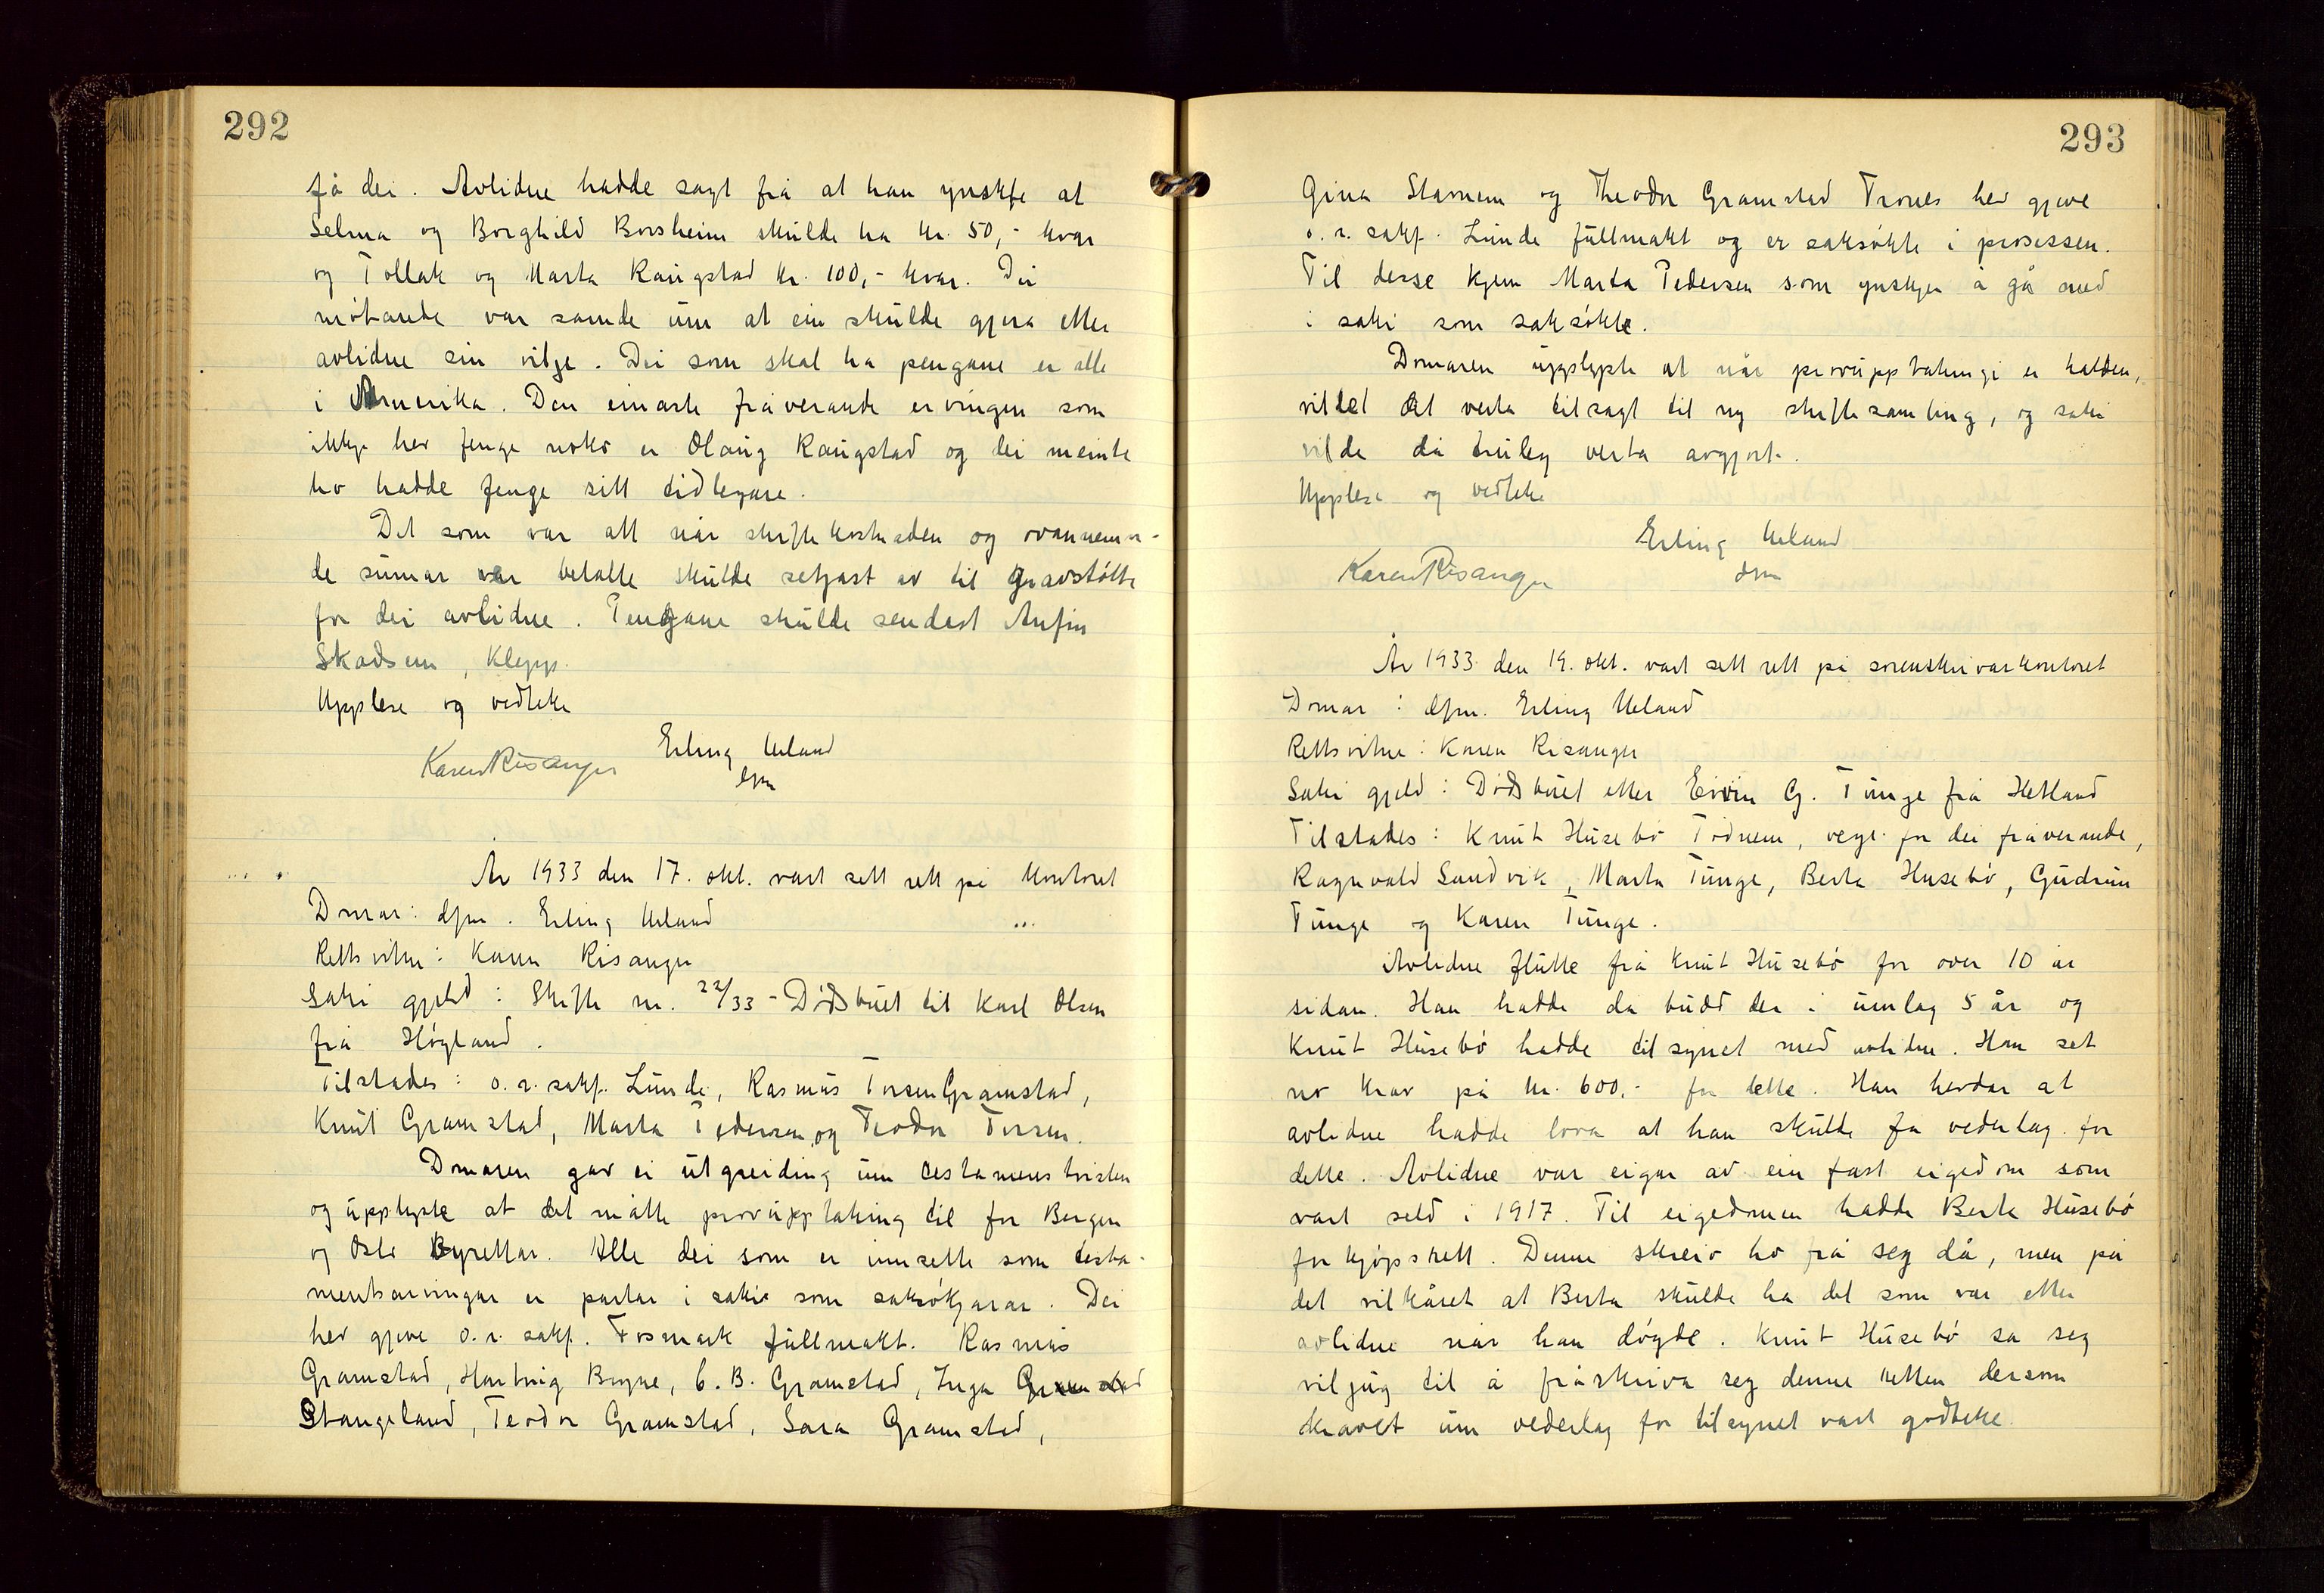 292
få dei. Avlidne hadde sagt frå at han ynskte at
Selma og Borghild Borsheim skulde ha kr. 50,- kvar
og Tollak og Marta Raugstad kr. 100,- kvar. Dei
møtande var samde um at ein skulde gjera etter
avlidne sin vilje. Dei som skal ha pengane er alle
i Amerika. Den einaste fråverande ervingen som
ikkje hev fenge noko er Olaug Raugstad og dei meinte
ho hadde fenge sitt tidlegare.
Det som var att når skiftekostnaden og ovannemn-
de sumar var betalte skulde setjast av til gravstøtte
for dei avlidne. Pengane skulde sendast Anfin
Skadsem, Klepp.
Upplese og vedteke
Erling Ueland
Karen Risanger dfm
År 1933 den 17. okt. vart sett rett på kontoret
Domar: dfm. Erling Ueland
Rettsvitne: Karen Risanger
Saki gjeld: Skifte nr. 22/33 - Dødsbuet til Karl Olsen
frå Høyland.
Tilstades: o.r. sakf. Lunde, Rasmus Torsen Gramstad,
Knut Gramstad, Marta Pedersen og Teodor Torsen.
Domaren gav ei utgreiding um testamenstvisten
og upplyste at det måtte provupptaking til for Bergen
og Oslo Byrettar. Alle dei som er innsette som testa-
mentsarvingar er partar i saki som saksøkjarar. Dei
hev gjeve o.r. sakf. Fosmark fullmakt. Rasmus
Gramstad, Hartvig Bryne, C. B. Gramstad, Inga
Stangeland, Teodor Gramstad, Sara Gramstad,
293
Gina Stavnem og Theodor Gramstad Trones hev gjeve
o.r. sakf. Lunde fullmakt og er saksøkte i prosessen.
Til desse kjem Marta Pedersen som ynskjer å gå med
i saki som saksøkte.
Domaren upplyste at når provupptakingi er halden,
vil det verta tilsagt til ny skiftesamling, og saki
vilde då truleg verta avgjort.
Upplese og vedteke
Erling Ueland
Karen Risanger dfm
År 1933 den 19. okt. vart sett rett på sorenskrivarkontoret
Domar: dfm. Erling Ueland
Rettsvitne: Karen Risanger
Saki gjeld: Dødsbuet etter Eivin G. Tunge frå Hetland
Tilstades: Knut Husebø Todnem, verje for dei fråverande,
Ragnvald Sandvik, Marta Tunge, Berta Husebø, Gudrun
Tunge og Karen Tunge.
Avlidne flutte frå Knut Husebø for over 10 år
sidan. Han hadde då budd der i umlag 5 år og
Knut Husebø hadde tilsynet med avlidne. Han set
no krav på kr. 600,- for dette. Han hevdar at
avlidne hadde lova at han skulde få vederlag for
dette. Avlidne var eigar av ein fast eigedom som
vart seld i 1917. Til eigedomen hadde Berta Husebø
forkjøpsrett. Denne skreiv ho frå seg då, men på
det vilkåret at Berta skulde ha det som var etter
avlidne når han døyde. Knut Husebø sa seg
viljug til å fråskriva seg denne retten dersom
kravet um vederlag for tilsynet vart godteke.